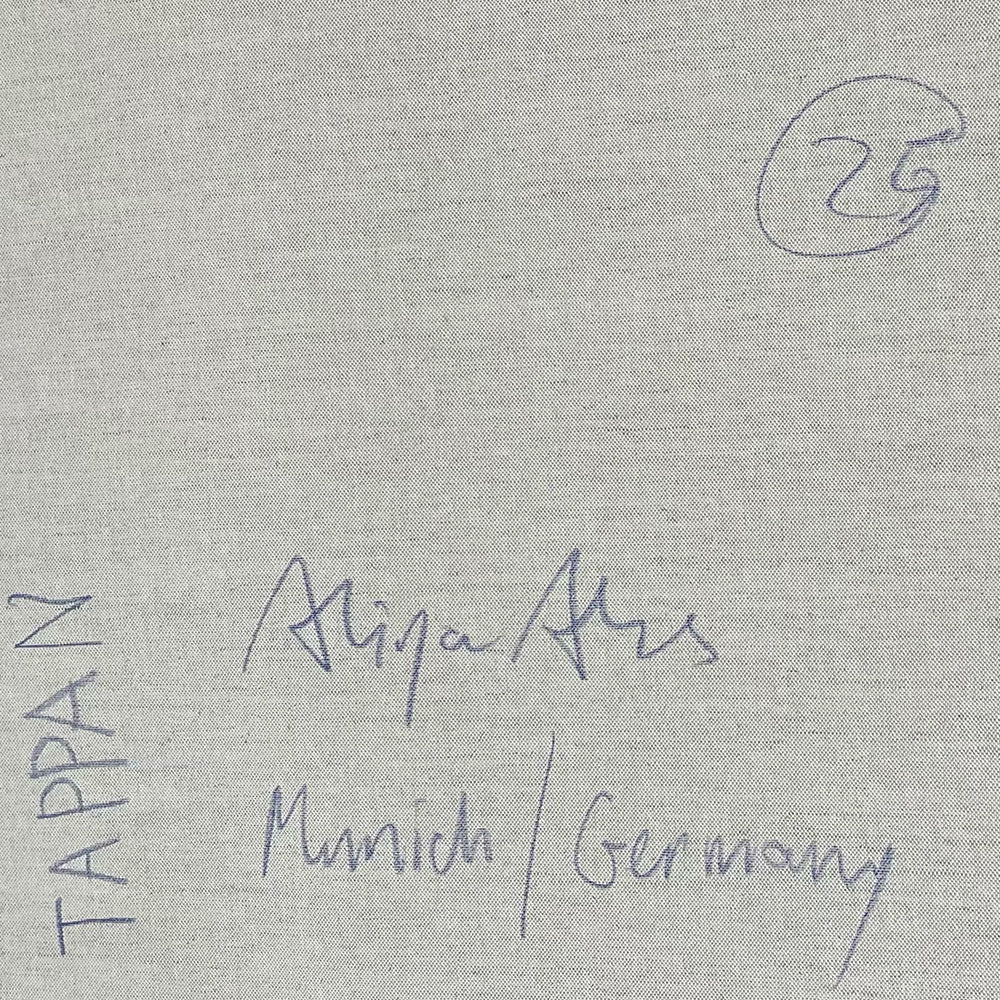 25
Aliya Abs
Munich / Germany
TAPPAN